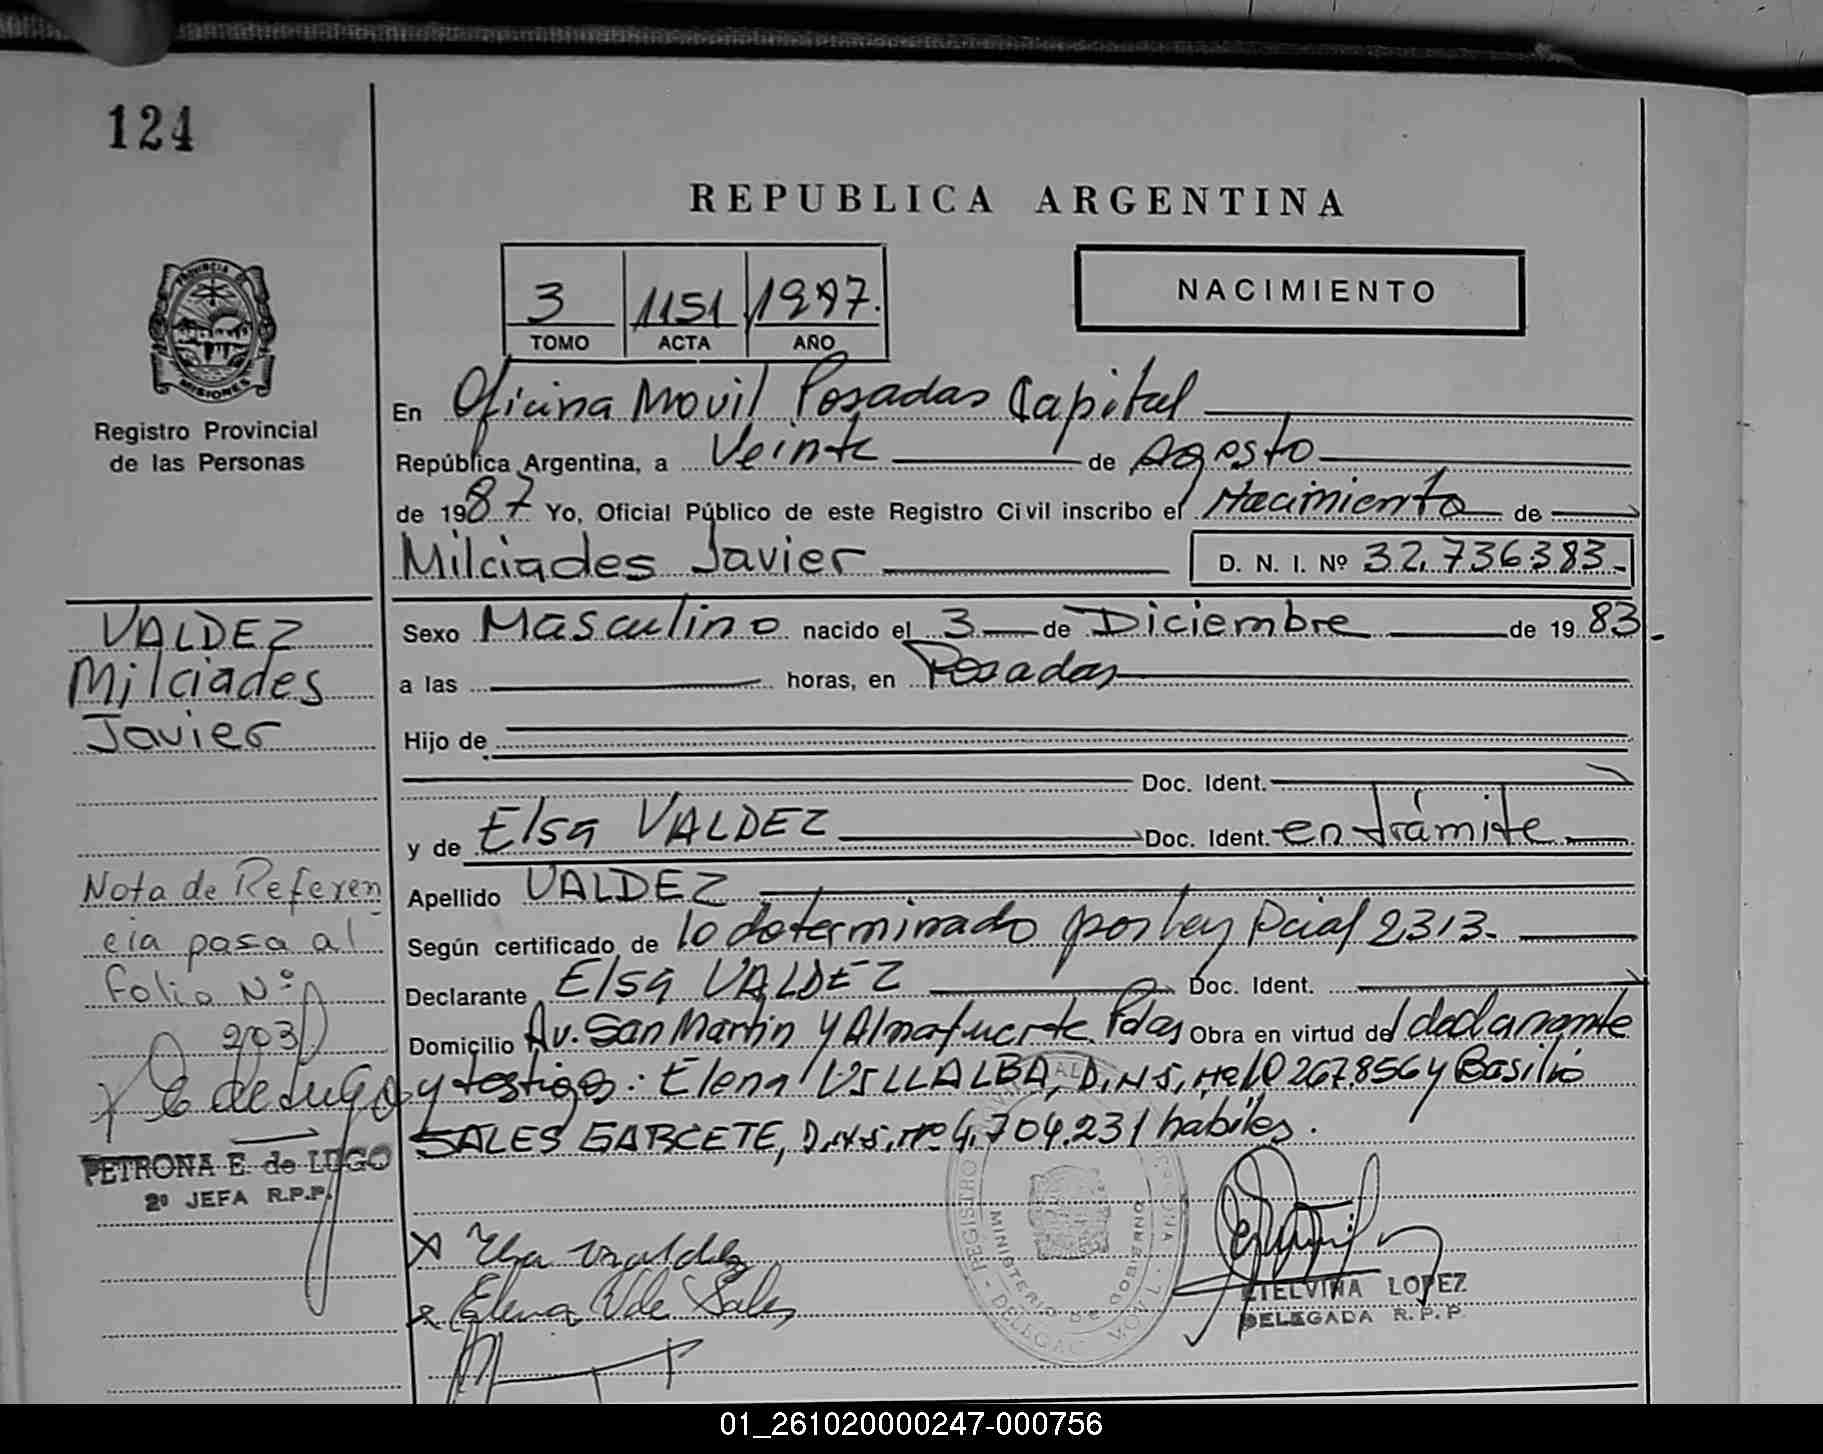 124
REPUBLICA ARGENTINA
3 1151 1987.
TOMO ACTA AÑO
NACIMIENTO
PROVINCIA DE
MISIONES
Registro Provincial
de las Personas
En Oficina Movil Posadas Capital
República Argentina, a Veinte de Agosto
de 1987 Yo, Oficial Público de este Registro Civil inscribo el Nacimiento de
Milciades Javier D. N. I. Nº 32.736383.-
VALDEZ
Milciades
Javier
Sexo Masculino nacido el 3 de Diciembre de 1983.-
a las horas, en Posadas
Hijo de
Doc. Ident.
y de Elsa VALDEZ Doc. Ident. en trámite
Apellido VALDEZ
Según certificado de lo determinado por ley Pcial 2313.
Declarante Elsa VALDEZ Doc. Ident.
Domicilio Av. San Martin y Almafuerte Pdas Obra en virtud del declarante
y testigos: Elena VILLALBA, D.N.I. Nº 10267.856 y Basilio
SALES GARCETE, D.N.I. Nº 4.704.231 habiles.
Nota de Referen
cia pasa al
folio Nº
203
E de Lugo
PETRONA E. de LUGO
2º JEFA R.P.P.
Elsa Valdez
Elena V de Sales
REGISTRO
MINISTERIO DE GOBIERNO
MOVIL
ETELVINA LOPEZ
DELEGADA R.P.P.
01_261020000247-000756